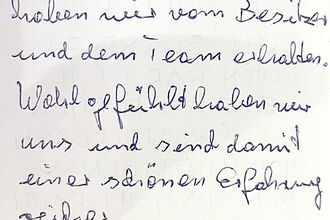 haben wir vom Besitzer
und dem Team erhalten.
Wohl gefühlt haben wir
uns und sind damit
einer schönen Erfahrung
reicher